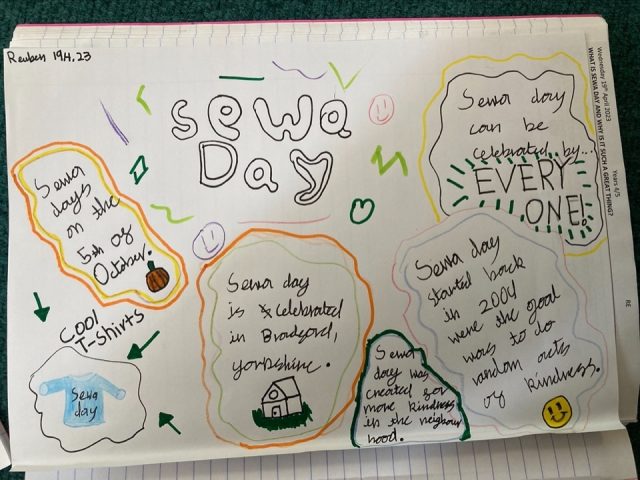 Reuben 19.4.23
Wednesday 19th April 2023
Years 4/5
RE
WHAT IS SEWA DAY AND WHY IS IT SUCH A GREAT THING?
Sewa
Day
Sewa day
can be
celebrated by...
EVERY
ONE!
Sewa
days
on the
5th of
October.
Sewa day
is celebrated
in Bradford,
yorkshire.
Sewa day
started back
in 2004
were the goal
was to do
random acts
of kindness.
Sewa
day was
created for
more kindness
in the neighbour
hood.
COOl
T-Shirts
Sewa
day